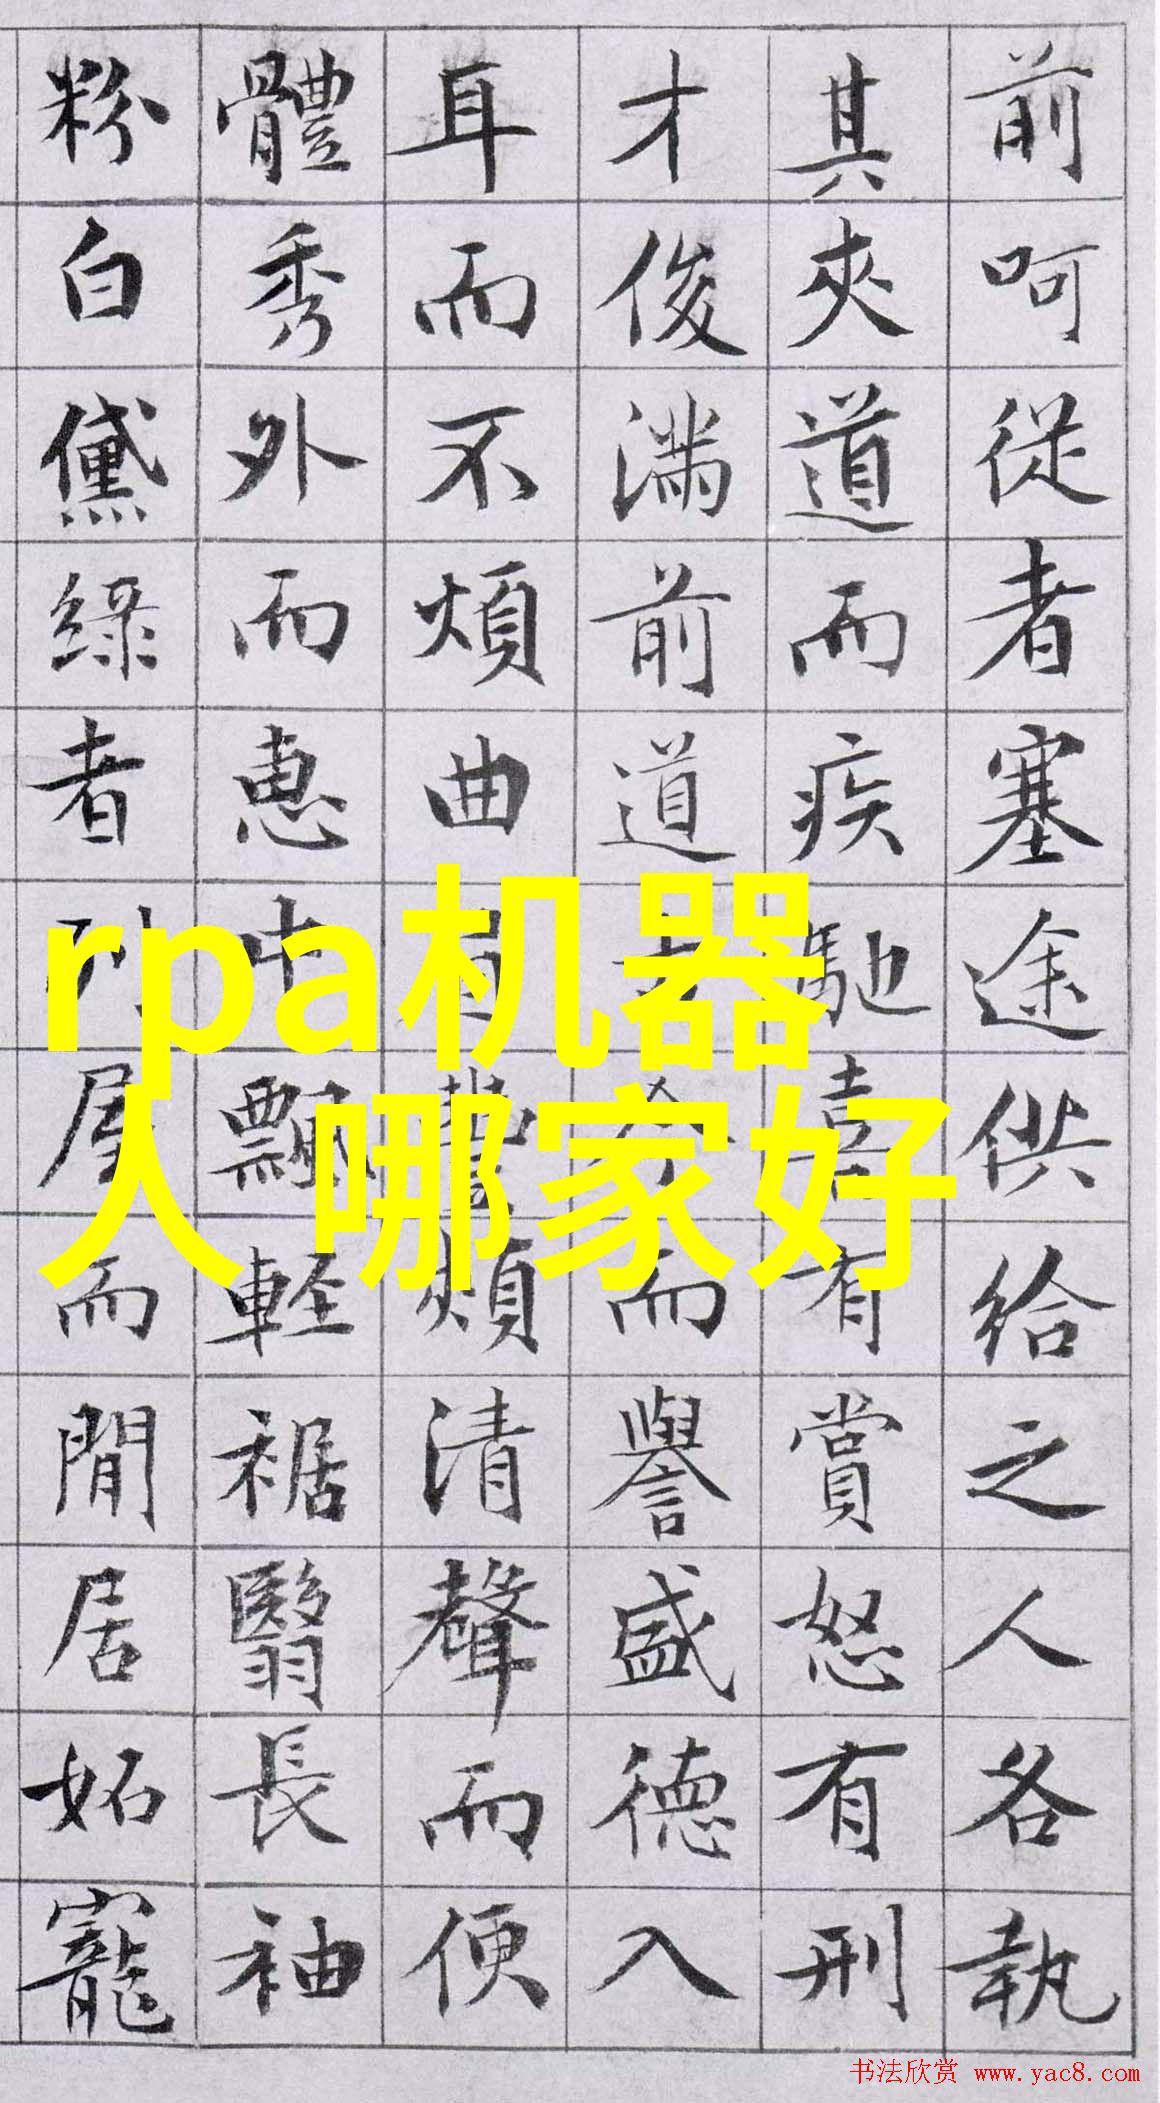 前呵從者塞途供給之人各執
其夾道而疾馳喜有賞怒有刑
才俊滿前道古今而譽盛德入
耳而不煩曲眉豐頰清聲而便
體秀外而惠中飄輕裾翳長袖
粉白黛綠者列屋而閒居妬寵
rpa机器
人 哪家好
书法欣赏 www.yac8.com